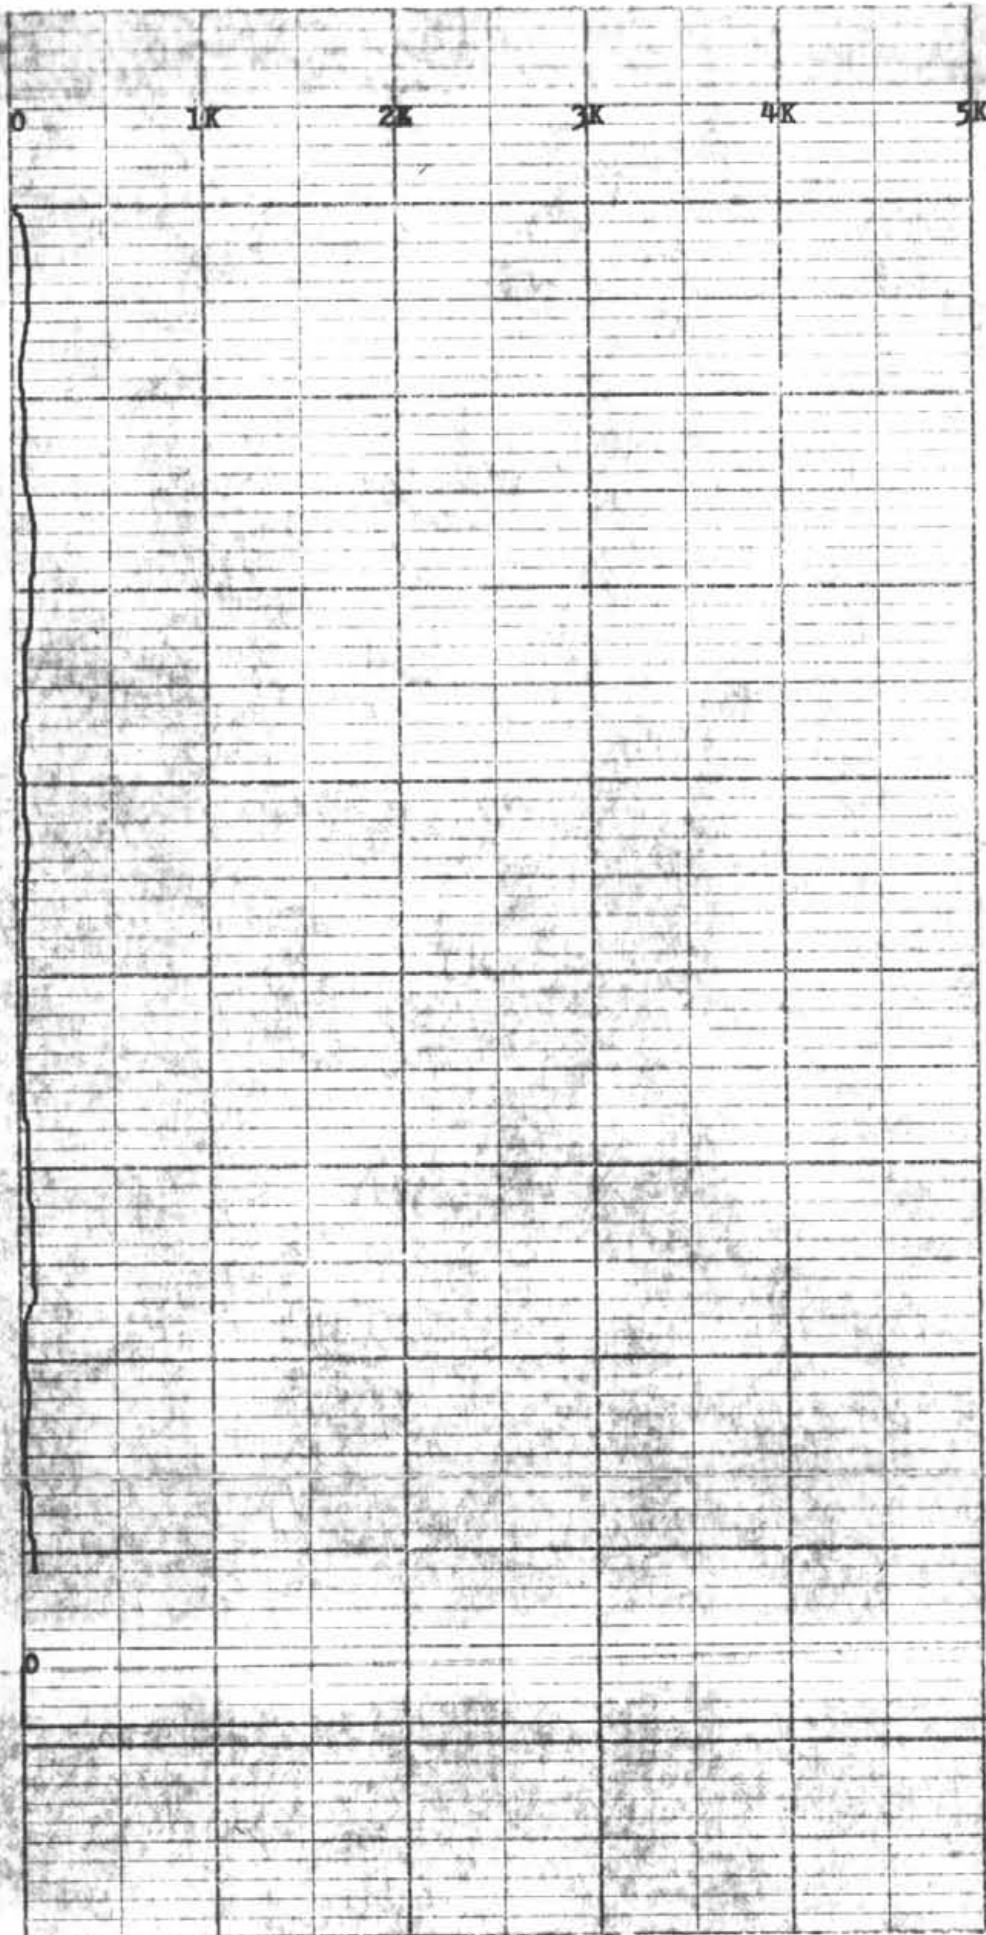 0 1K 2K 3K 4K 5K
0